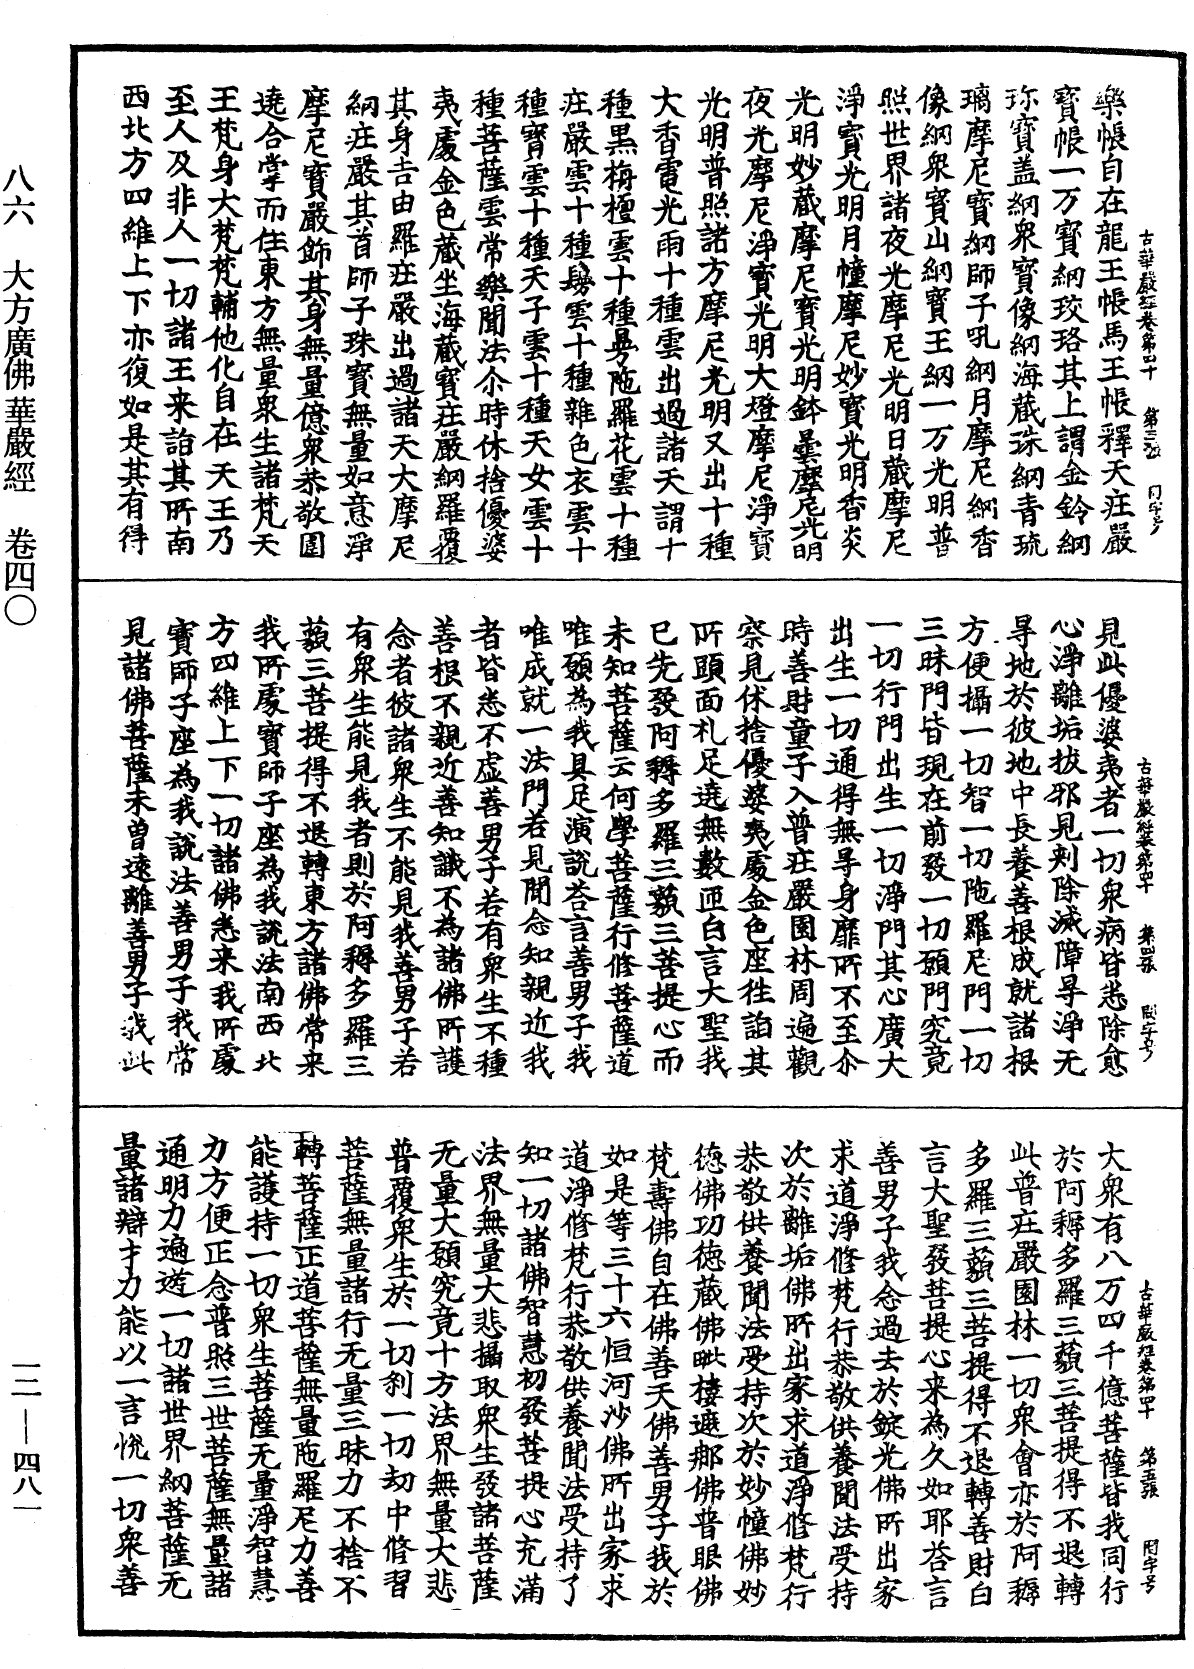 古華嚴經卷第四十　第三張　同字号
樂帳自在龍王帳馬王帳釋天庄嚴
寳帳一万寳網珓珞其上謂金鈴網
珎寳盖網衆寳像網海蔵珠網青琉
璃摩尼寳網師子吼網月摩尼網香
像網衆寳山網寳王網一万光明普
照世界諸夜光摩尼光明日蔵摩尼
淨寳光明月幢摩尼妙寳光明香炎
光明妙蔵摩尼寳光明鉢曇摩尼光明
夜光摩尼淨寳光明大燈摩尼淨寳
光明普照諸方摩尼光明又出十種
大香電光雨十種雲出過諸天謂十
種黒栴檀雲十種曼陁羅花雲十種
庄嚴雲十種鬘雲十種雜色衣雲十
種寳雲十種天子雲十種天女雲十
種菩薩雲常樂聞法尒時休捨優婆
夷處金色蔵坐海蔵寳庄嚴網羅覆
其身吉由羅庄嚴出過諸天大摩尼
網庄嚴其首師子珠寳無量如意淨
摩尼寳嚴飾其身無量億衆恭敬圍
遶合掌而住東方無量衆生諸梵天
王梵身大梵梵輔他化自在天王乃
至人及非人一切諸王来詣其所南
西北方四維上下亦復如是其有得
古華嚴經卷第四十　第四張　同字号
見此優婆夷者一切衆病皆悉除愈
心淨離垢拔邪見刾除滅障㝵淨无
㝵地於彼地中長養善根成就諸根
方便攝一切智一切陁羅尼門一切
三昧門皆現在前發一切願門究竟
一切行門出生一切淨門其心廣大
出生一切通得無㝵身靡所不至尒
時善財童子入普庄嚴園林周遍觀
察見休捨優婆夷處金色座往詣其
所頭面礼足遶無數匝白言大聖我
已先發阿耨多羅三藐三菩提心而
未知菩薩云何學菩薩行修菩薩道
唯願為我具足演說荅言善男子我
唯成就一法門若見聞念知親近我
者皆悉不虛善男子若有衆生不種
善根不親近善知識不為諸佛所護
念者彼諸衆生不能見我善男子若
有衆生能見我者則於阿耨多羅三
藐三菩提得不退轉東方諸佛常来
我所處寳師子座為我說法南西北
方四維上下一切諸佛悉来我所處
寳師子座為我說法善男子我常
見諸佛菩薩未曽遠離善男子我此
古華嚴經卷第四十　第五張　同字号
大衆有八万四千億菩薩皆我同行
於阿耨多羅三藐三菩提得不退轉
此普庄嚴園林一切衆會亦於阿耨
多羅三藐三菩提得不退轉善財白
言大聖發菩提心来為久如耶荅言
善男子我念過去於錠光佛所出家
求道淨修梵行恭敬供養聞法受持
次於離垢佛所出家求道淨修梵行
恭敬供養聞法受持次於妙幢佛妙
徳佛功徳蔵佛毗樓遮那佛普眼佛
梵壽佛自在佛善天佛善男子我於
如是等三十六恒河沙佛所出家求
道淨修梵行恭敬供養聞法受持了
知一切諸佛智慧初發菩提心充滿
法界無量大悲攝取衆生發諸菩薩
无量大願究竟十方法界無量大悲
普覆衆生於一切刹一切劫中脩習
菩薩無量諸行无量三昧力不捨不
轉菩薩正道菩薩無量陁羅尼力善
能護持一切衆生菩薩无量淨智慧
力方便正念普照三世菩薩無量諸
通明力遍遊一切諸世界網菩薩无
量諸辯才力能以一言恱一切衆善
八六　大方廣佛華嚴經　卷四〇
一二—四八一